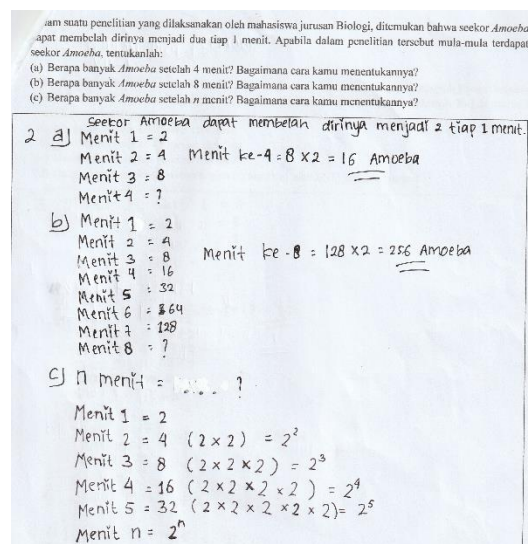 lam suatu penelitian yang dilaksanakan oleh mahasiswa jurusan Biologi, ditemukan bahwa seekor Amoeba
apat membelah dirinya menjadi dua tiap 1 menit. Apabila dalam penelitian tersebut mula-mula terdapat
seekor Amoeba, tentukanlah:
(a) Berapa banyak Amoeba setelah 4 menit? Bagaimana cara kamu menentukannya?
(b) Berapa banyak Amoeba setelah 8 menit? Bagaimana cara kamu menentukannya?
(c) Berapa banyak Amoeba setelah n menit? Bagaimana cara kamu menentukannya?
Seekor Amoeba dapat membelah dirinya menjadi 2 tiap 1 menit.
2 a) Menit 1 = 2
Menit 2 = 4 Menit ke-4 = 8 x 2 = 16 Amoeba
Menit 3 = 8
Menit 4 = ?
b) Menit 1 = 2
Menit 2 = 4
Menit 3 = 8 Menit ke - 8 = 128 x 2 = 256 Amoeba
Menit 4 = 16
Menit 5 = 32
Menit 6 = 64
Menit 7 = 128
Menit 8 = ?
c) n menit = .... ?
Menit 1 = 2
Menit 2 = 4 (2 x 2) = 2²
Menit 3 = 8 (2 x 2 x 2) = 2³
Menit 4 = 16 (2 x 2 x 2 x 2) = 2⁴
Menit 5 = 32 (2 x 2 x 2 x 2 x 2) = 2⁵
Menit n = 2ⁿ